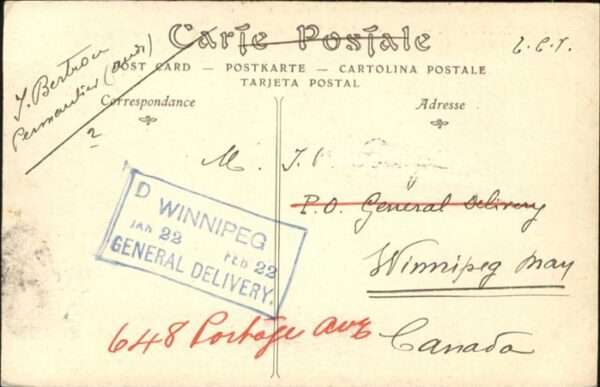 Carte Postale
POST CARD — POSTKARTE — CARTOLINA POSTALE
TARJETA POSTAL
Correspondance
Adresse
J. Bertrou
2
M. J.
D WINNIPEG
JAN 22 FEB 22
GENERAL DELIVERY.
P.O. General Delivery
Winnipeg Man
648 Portage Ave
Canada